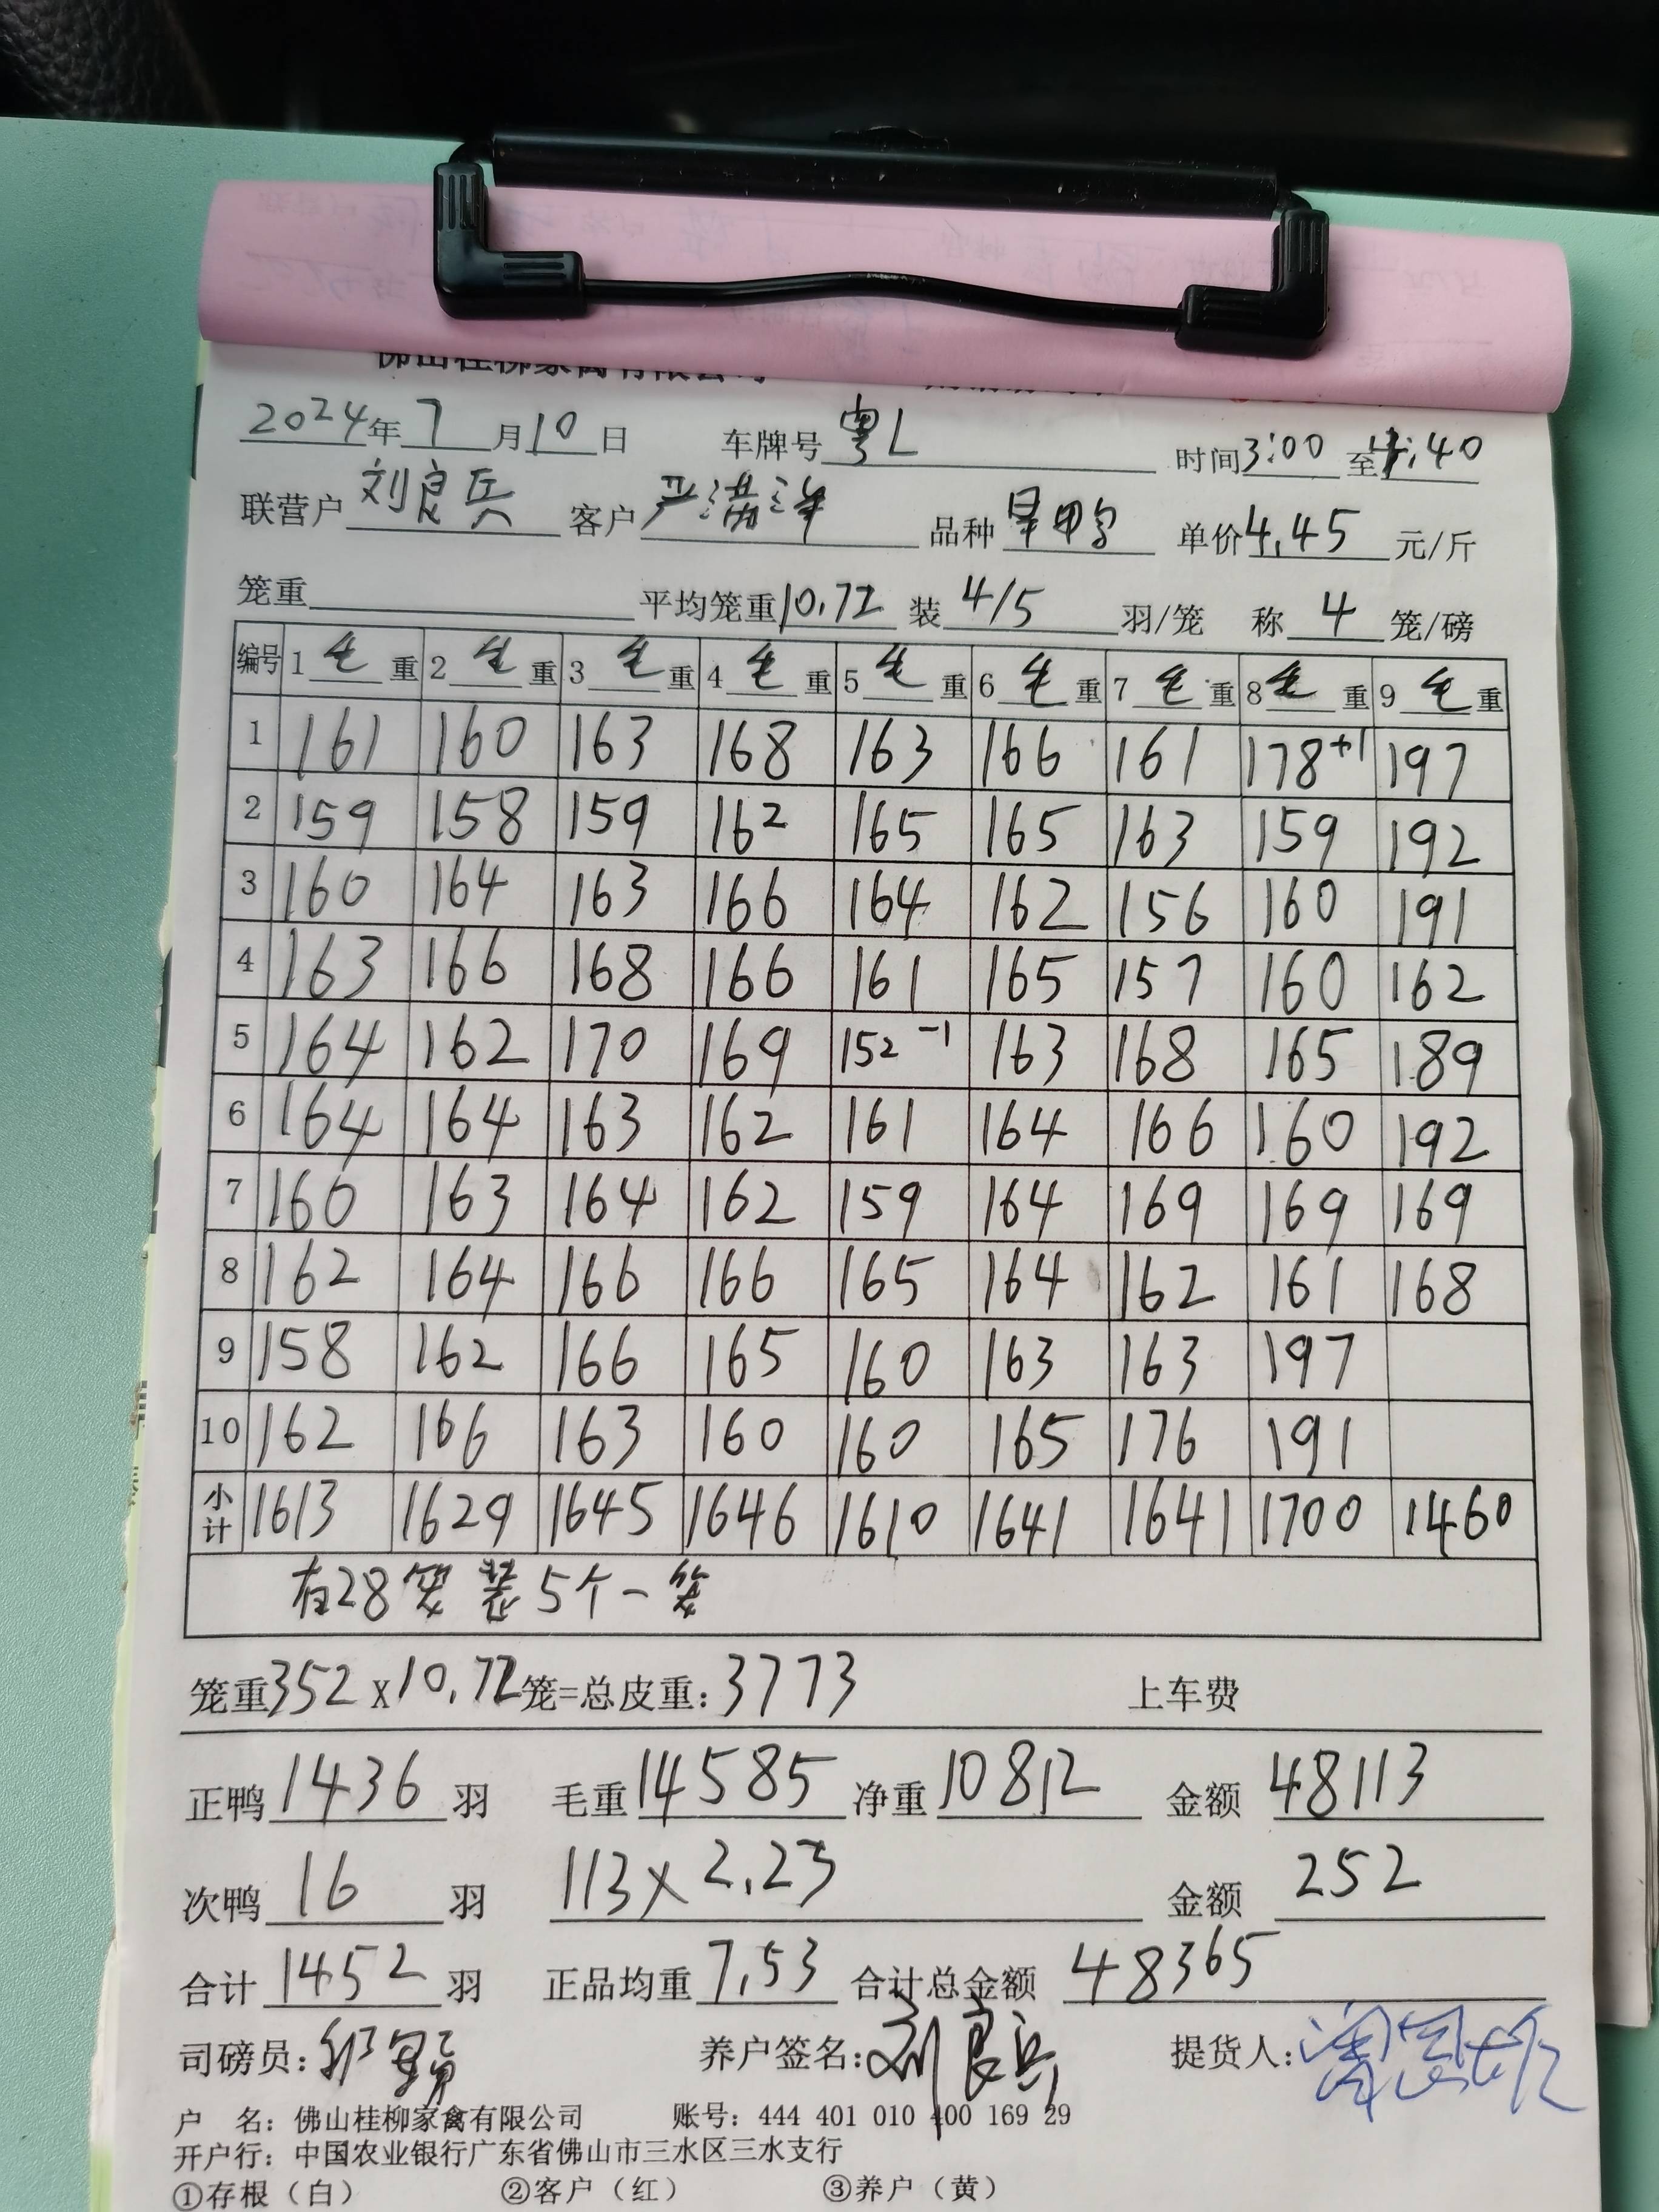 佛山桂柳家禽有限公司
2024年7月10日 车牌号 粤L 时间3:00至4:40
联营户 刘良兵 客户 严满洋 品种 单价4.45元/斤
笼重 平均笼重10.72 装4/5羽/笼 称4笼/磅
编号 1毛重 2毛重 3毛重 4毛重 5毛重 6毛重 7毛重 8毛重 9毛重
1 161 160 163 168 163 166 161 178+1 197
2 159 158 159 162 165 165 163 159 192
3 160 164 163 166 164 162 156 160 191
4 163 166 168 166 161 165 157 160 162
5 164 162 170 169 152-1 163 168 165 189
6 164 164 163 162 161 164 166 160 192
7 160 163 164 162 159 164 169 169 169
8 162 164 166 166 165 164 162 161 168
9 158 162 166 165 160 163 163 197
10 162 166 163 160 160 165 176 191
小计 1613 1629 1645 1646 1610 1641 1641 1700 1460
有28笼装5个一笼
笼重352x10.72笼=总皮重:3773 上车费
正鸭1436羽 毛重14585 净重10812 金额48113
次鸭16羽 113x2.23 金额252
合计1452羽 正品均重7.53 合计总金额48365
司磅员: 养户签名:刘良兵 提货人:
户 名：佛山桂柳家禽有限公司 账号：444 401 010 400 169 29
开户行：中国农业银行广东省佛山市三水区三水支行
①存根（白） ②客户（红） ③养户（黄）